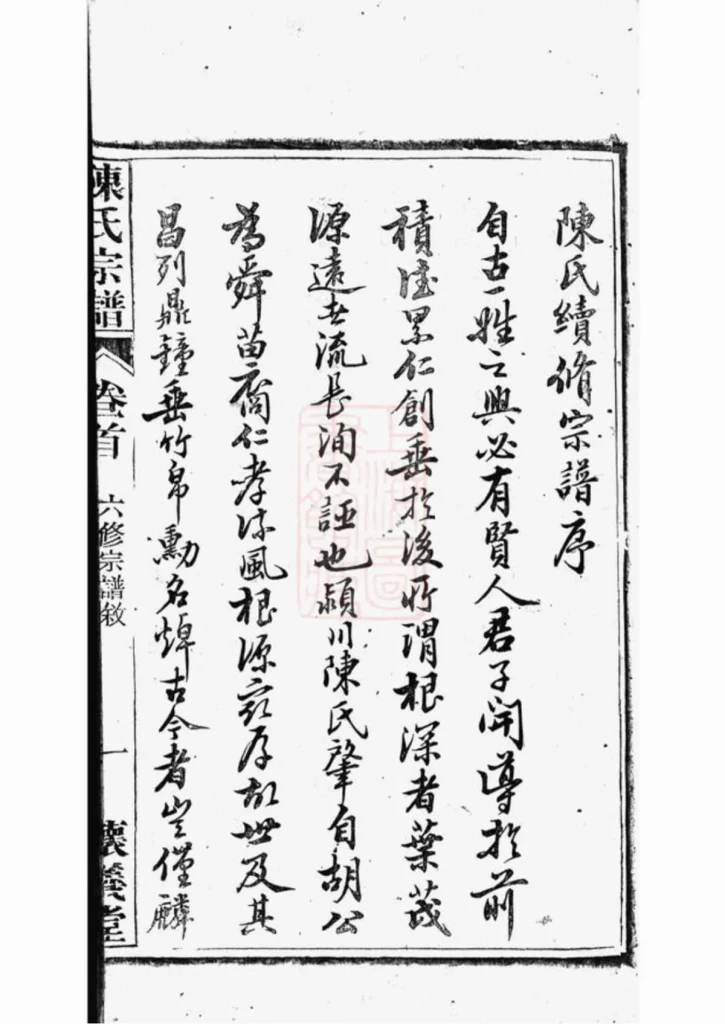 陳氏續脩宗譜序
自古一姓之興必有賢人君子開導於前
積德累仁創垂於後所謂根深者葉茂
源遠者流長洵不誣也潁川陳氏肇自胡公
為舜苗裔仁孝流風根源最厚故世及其
昌列鼎鐘垂竹帛勳名焯古今者豈僅麟
陳氏宗譜
卷首
六修宗譜敘
一
義堂
上海圖